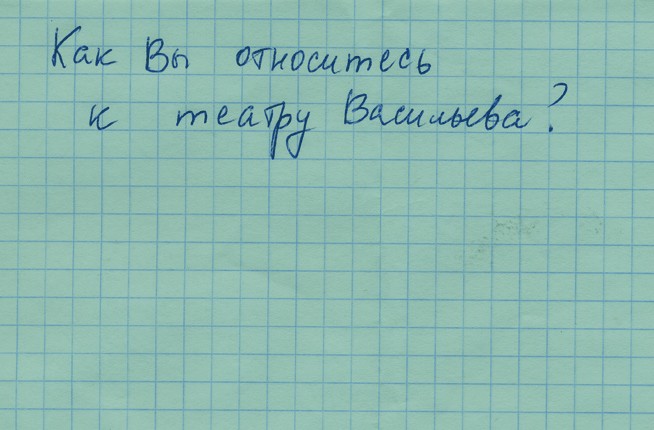 Как Вы относитесь
к театру Васильева?